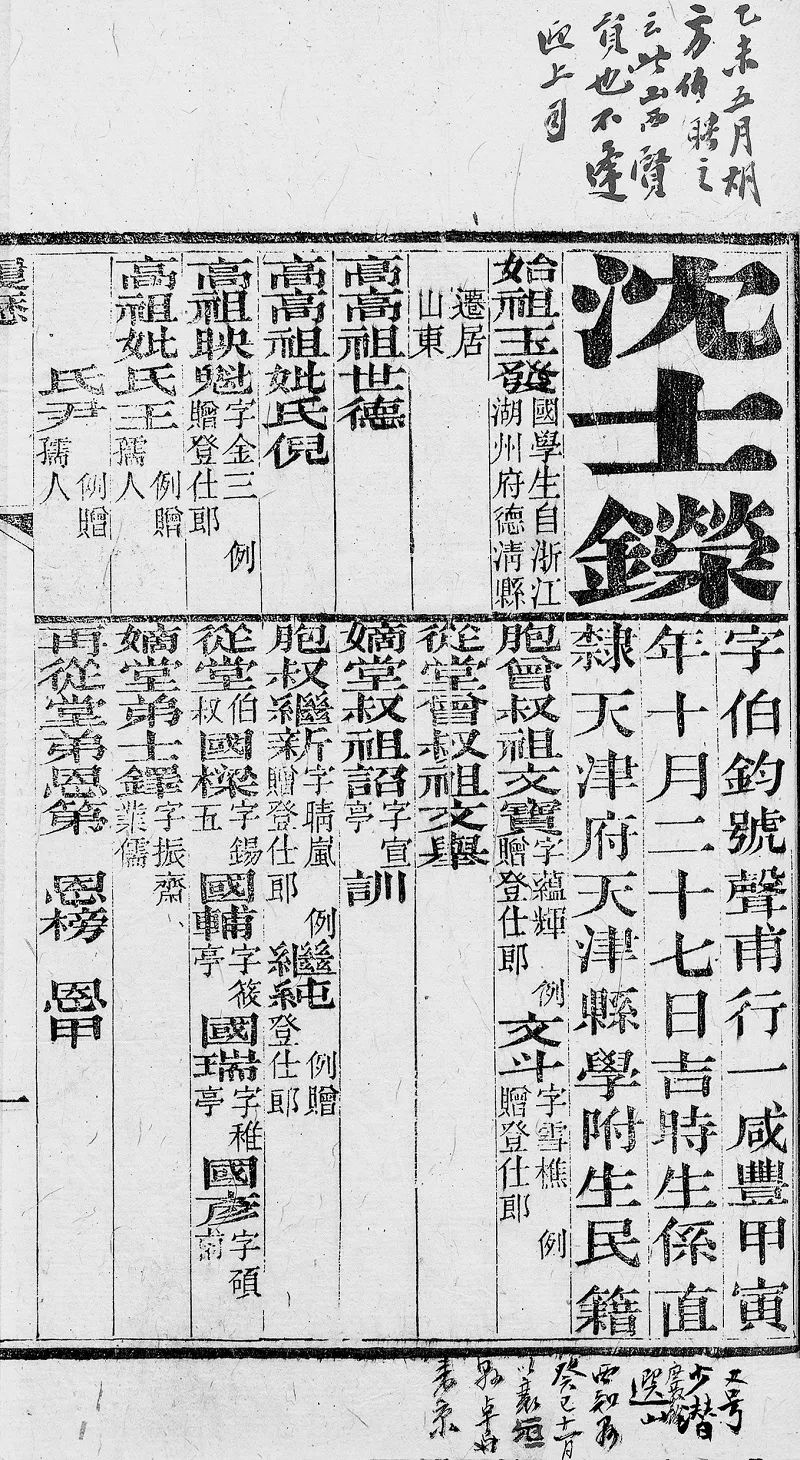 乙未五月胡
方伯聘之
云此山西賢
員也不逢
迎上司
沈士鑅
字伯鈞號聲甫行一咸豐甲寅
年十月二十七日吉時生係直
隸天津府天津縣學附生民籍
始祖玉發 國學生自浙江
湖州府德清縣
遷居
山東
高高祖世德
高高祖妣氏倪
高祖映魁 字金三 例
贈登仕郎
高祖妣氏王 例贈
孺人
氏尹 例贈
孺人
胞曾叔祖文寶 字蘊輝 例
贈登仕郎
文斗 字雪樵 例
贈登仕郎
從堂曾叔祖文舉
嫡堂叔祖詔 字宣
亭
訓
胞叔繼新 字晴嵐 例
贈登仕郎
繼純 例贈
登仕郎
從堂伯
叔
國樑 字錫
五
國輔 字筱
亭
國瑞 字稚
亭
國彥 字碩
甫
嫡堂弟士鐸 字振齋
業儒
再從堂弟恩第 恩榜 恩甲
履歷
一
又号
少潛
選山
西知县
癸巳十一月
以襄垣
县卓